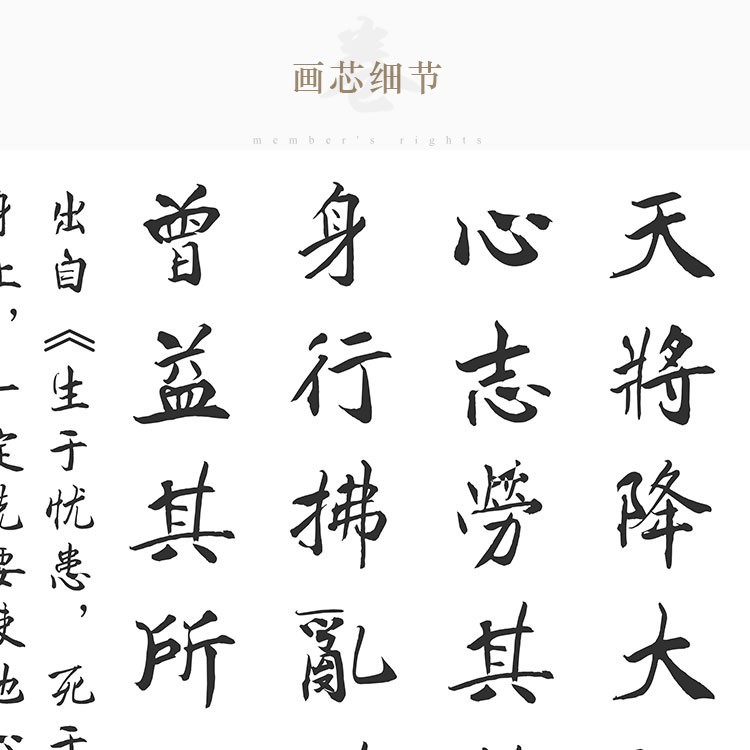 画芯细节
member's rights
天將降大
心志勞其
身行拂亂
曾益其所
出自《生于忧患，死于
身上，一定先要使他心